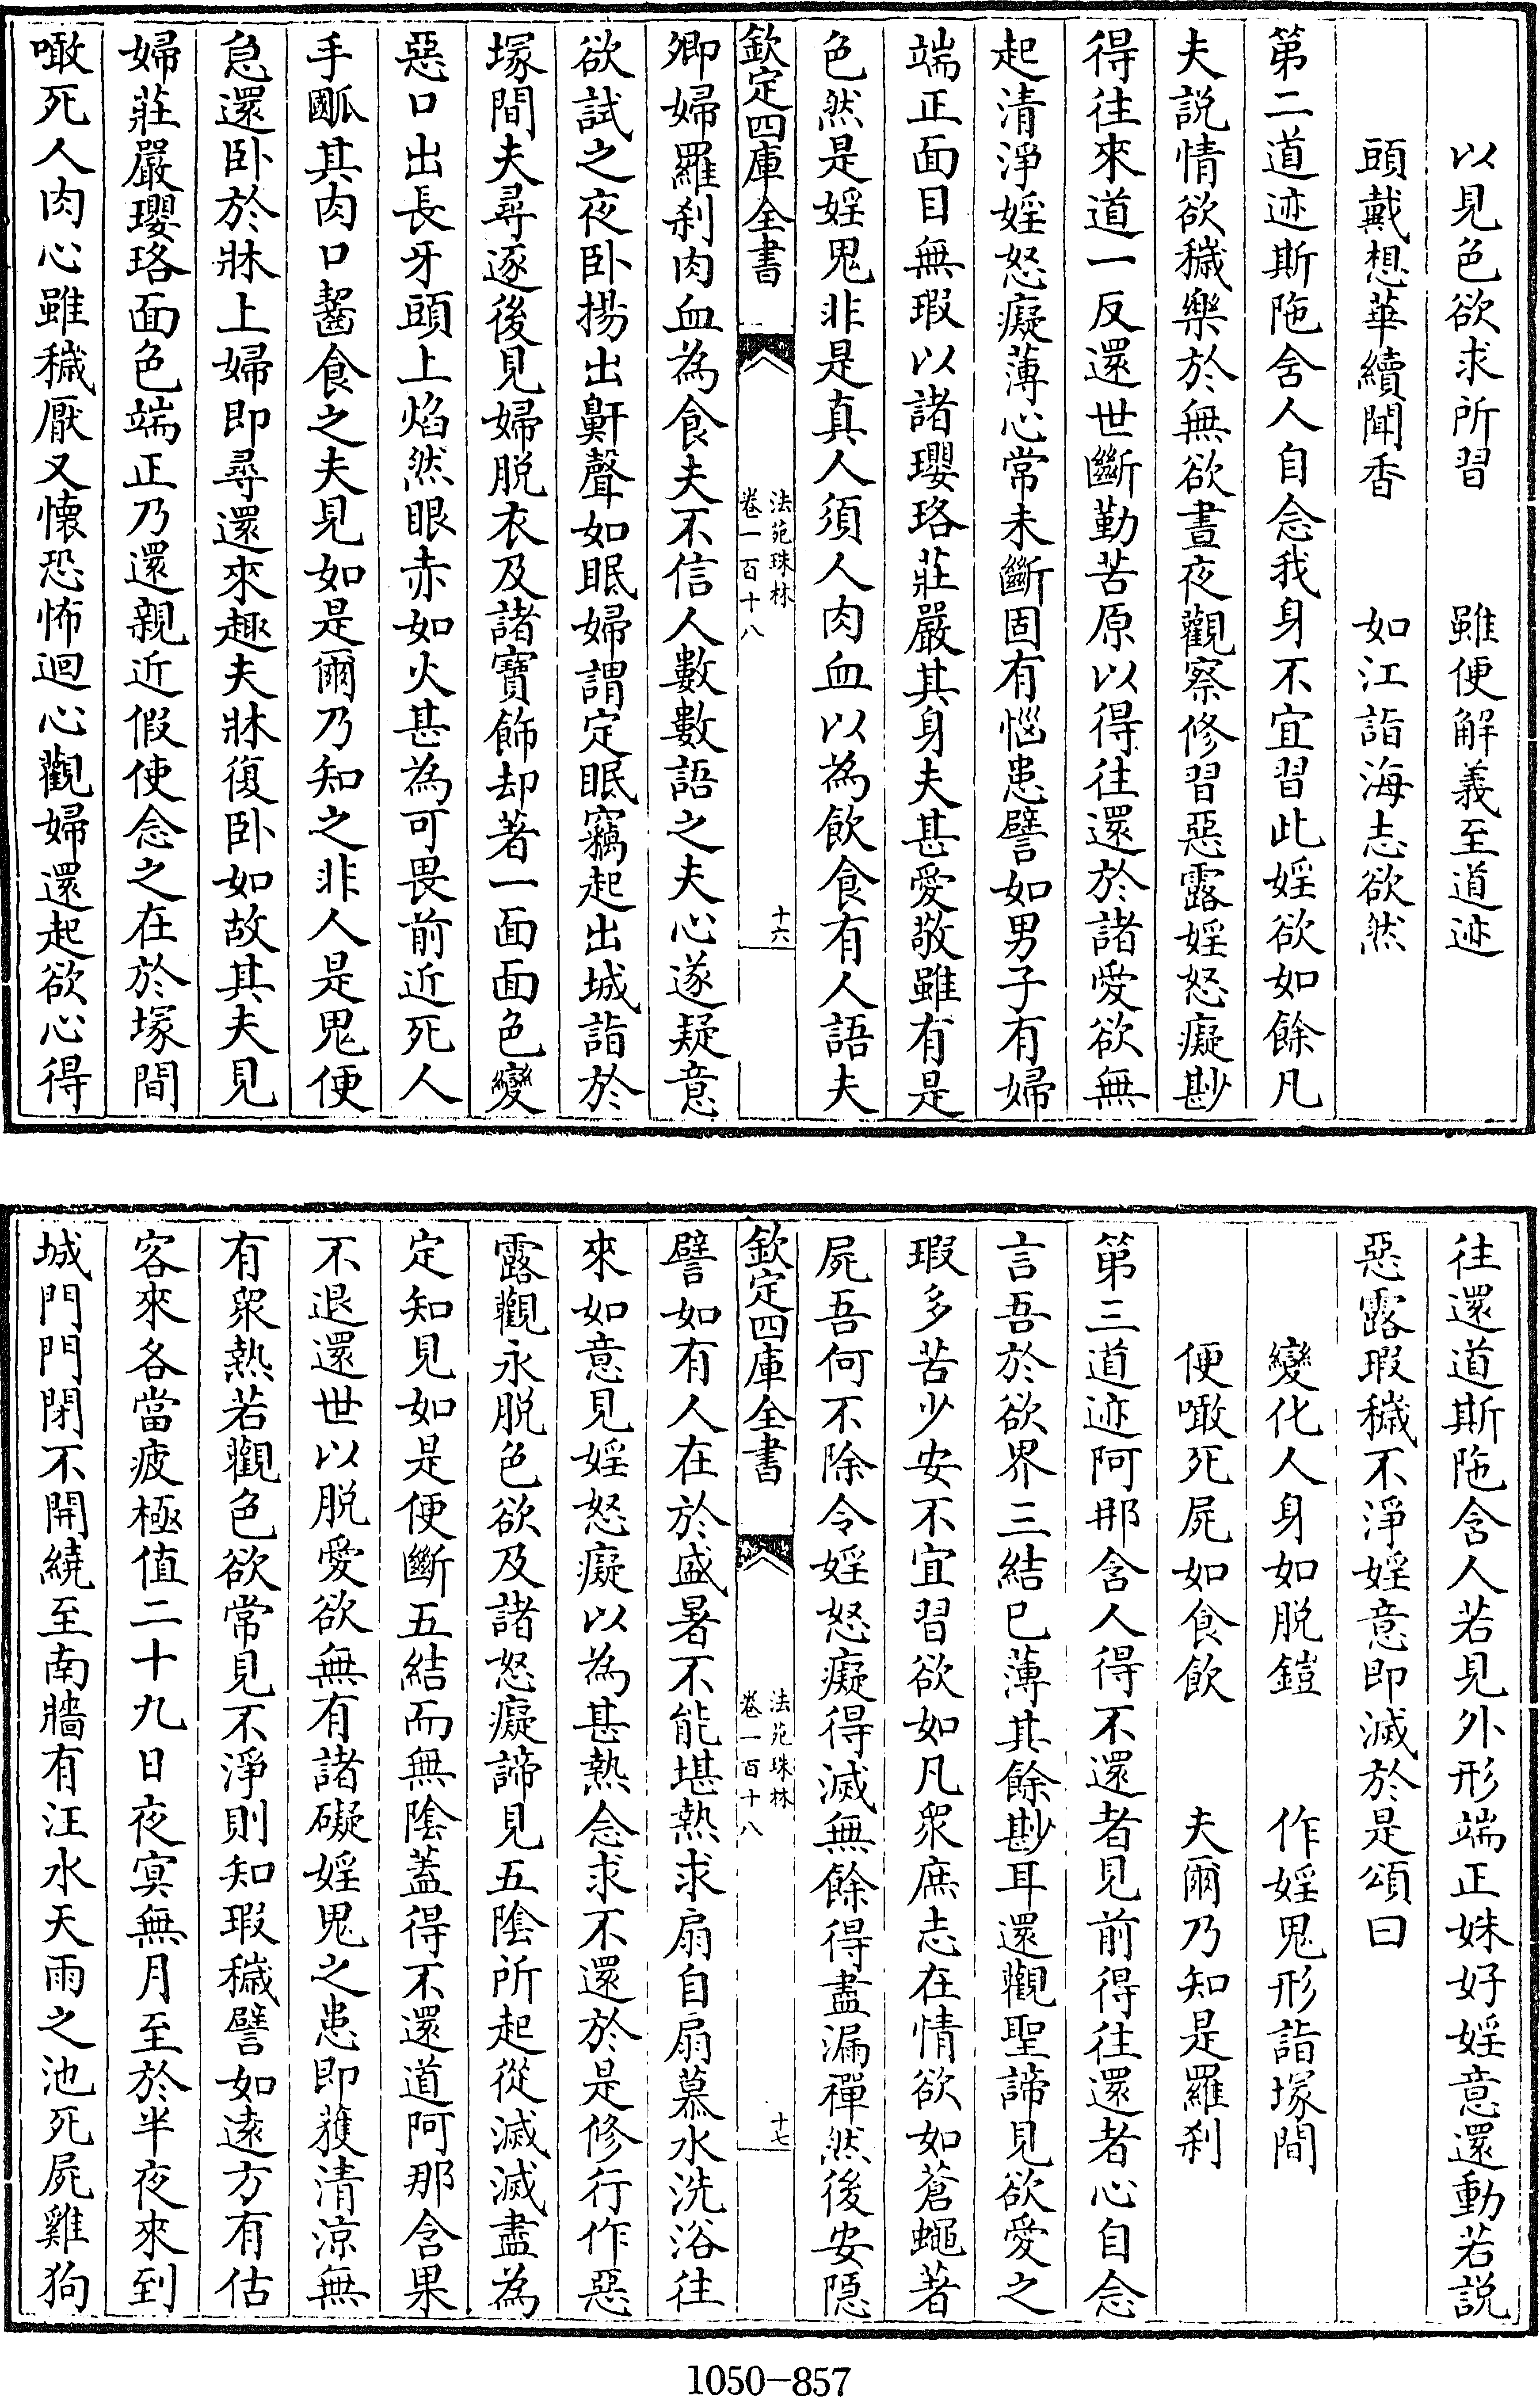 以見色欲求所習　雖便解義至道迹
頭戴想華續聞香　如江詣海志欲然
第二道迹斯陁舍人自念我身不宜習此婬欲如餘凡
夫説情欲穢樂於無欲晝夜觀察修習惡露婬怒癡尠
得往來道一反還世斷勤苦原以得往還於諸愛欲無
起清淨婬怒癡薄心常未斷固有惱患譬如男子有婦
端正面目無瑕以諸瓔珞莊嚴其身夫甚愛敬雖有是
色然是婬鬼非是真人須人肉血以為飲食有人語夫
欽定四庫全書
法苑珠林
卷一百十八
十六
卿婦羅刹肉血為食夫不信人數數語之夫心遂疑意
欲試之夜卧揚出鼾聲如眠婦謂定眠竊起出城詣於
塚間夫尋逐後見婦脱衣及諸寳飾却著一面面色變
惡口出長牙頭上焰然眼赤如火甚為可畏前近死人
手㔳其肉口齧食之夫見如是爾乃知之非人是鬼便
急還卧於牀上婦即尋還來趣夫牀復卧如故其夫見
婦莊嚴瓔珞面色端正乃還親近假使念之在於塚間
噉死人肉心雖穢厭又懐恐怖迴心觀婦還起欲心得
往還道斯陁含人若見外形端正姝好婬意還動若説
惡露瑕穢不淨婬意即滅於是頌曰
變化人身如脱鎧　作婬鬼形詣塚間
便噉死屍如食飲　夫爾乃知是羅刹
第三道迹阿那含人得不還者見前得往還者心自念
言吾於欲界三結已薄其餘尠耳還觀聖諦見欲愛之
瑕多苦少安不宜習欲如凡衆庶志在情欲如蒼蠅著
屍吾何不除令婬怒癡得滅無餘得盡漏禪然後安隱
欽定四庫全書
法苑珠林
卷一百十八
十七
譬如有人在於盛暑不能堪熱求扇自扇慕水洗浴往
來如意見婬怒癡以為甚熱念求不還於是修行作惡
露觀永脱色欲及諸怒癡諦見五陰所起從滅滅盡為
定知見如是便斷五結而無陰蓋得不還道阿那含果
不退還世以脱愛欲無有諸礙婬鬼之患即獲清涼無
有衆熱若觀色欲常見不淨則知瑕穢譬如逺方有估
客來各當疲極值二十九日夜㝠無月至於半夜來到
城門門閉不開繞至南牆有汪水天雨之池死屍雞狗
1050-857